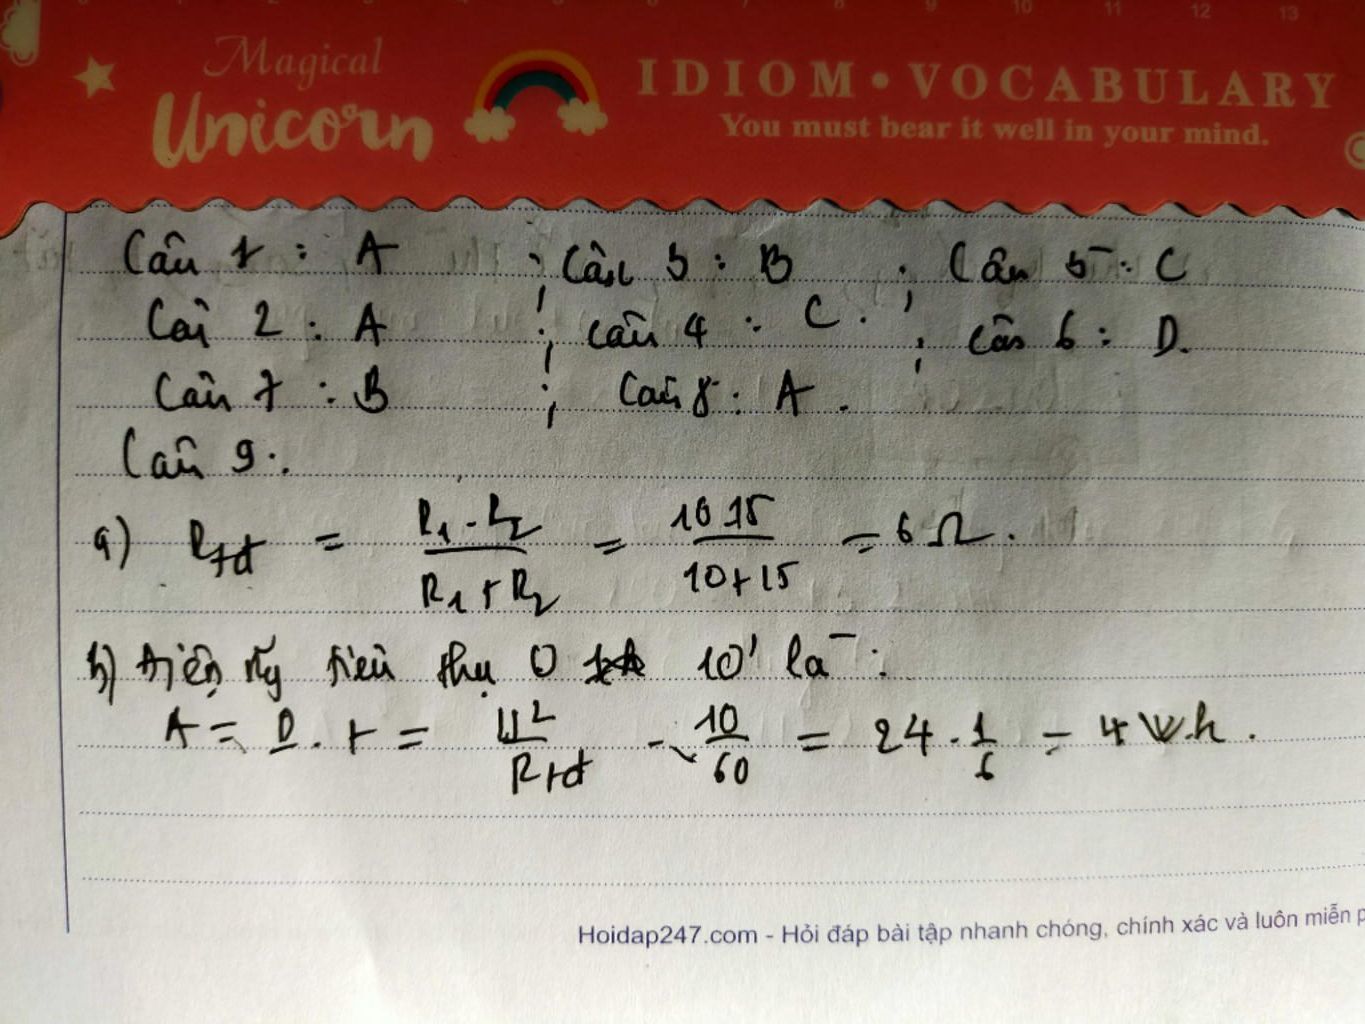 Magical
Unicorn
IDIOM • VOCABULARY
You must bear it well in your mind.
9 10 11 12 13
Câu 1 : A ; Câu 3 : B ; Câu 5 : C
Câu 2 : A ; Câu 4 : C. ; Câu 6 : D.
Câu 7 : B ; Câu 8 : A.
Câu 9 :
a) Rtđ = R1 . R2 / R1 + R2 = 10.15 / 10+15 = 6 Ω.
b) Điện tiêu thụ 10' là :
A = P . t = U² / Rtđ . 10 / 60 = 24 . 1 / 6 = 4 W.h.
Hoidap247.com - Hỏi đáp bài tập nhanh chóng, chính xác và luôn miễn p